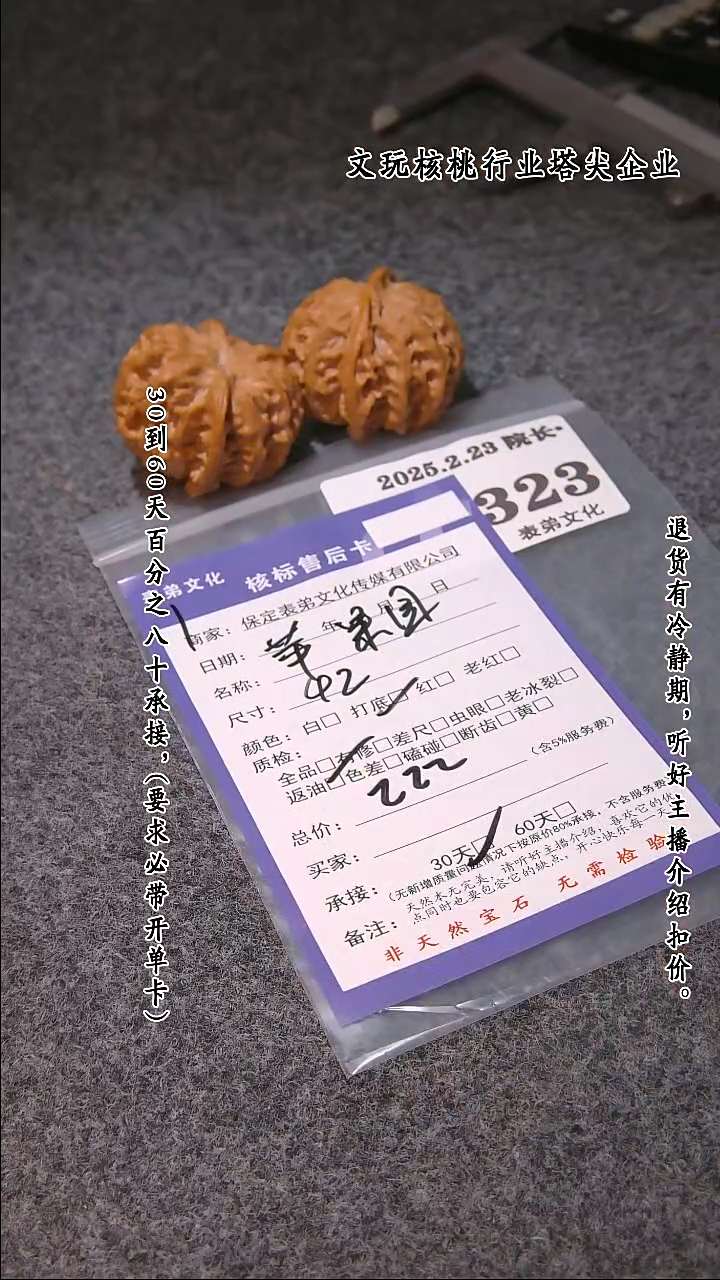 文玩核桃行业塔尖企业
30到60天百分之八十承接，(要求必带开单卡)
退货有冷静期，听好主播介绍扣价。
2025.2.23 院长·
323
表弟文化
表弟文化 核标售后卡
商家：保定表弟文化传媒有限公司
日期： 年 月 日
名称：苹果园
尺寸：42
颜色：白□ 打底□ 红□ 老红□
质检：全品□有修□差尺□虫眼□老冰裂□
返油□色差□磕碰□断齿□黄□
总价：222 (含5%服务费)
买家：
承接：30天□ 60天□
(无新增质量问题情况下按原价80%承接，不含服务费)
备注：天然本无完美，请听好主播介绍，喜欢它的优
点同时也要包容它的缺点，开心快乐每一天
非天然宝石 无需检验